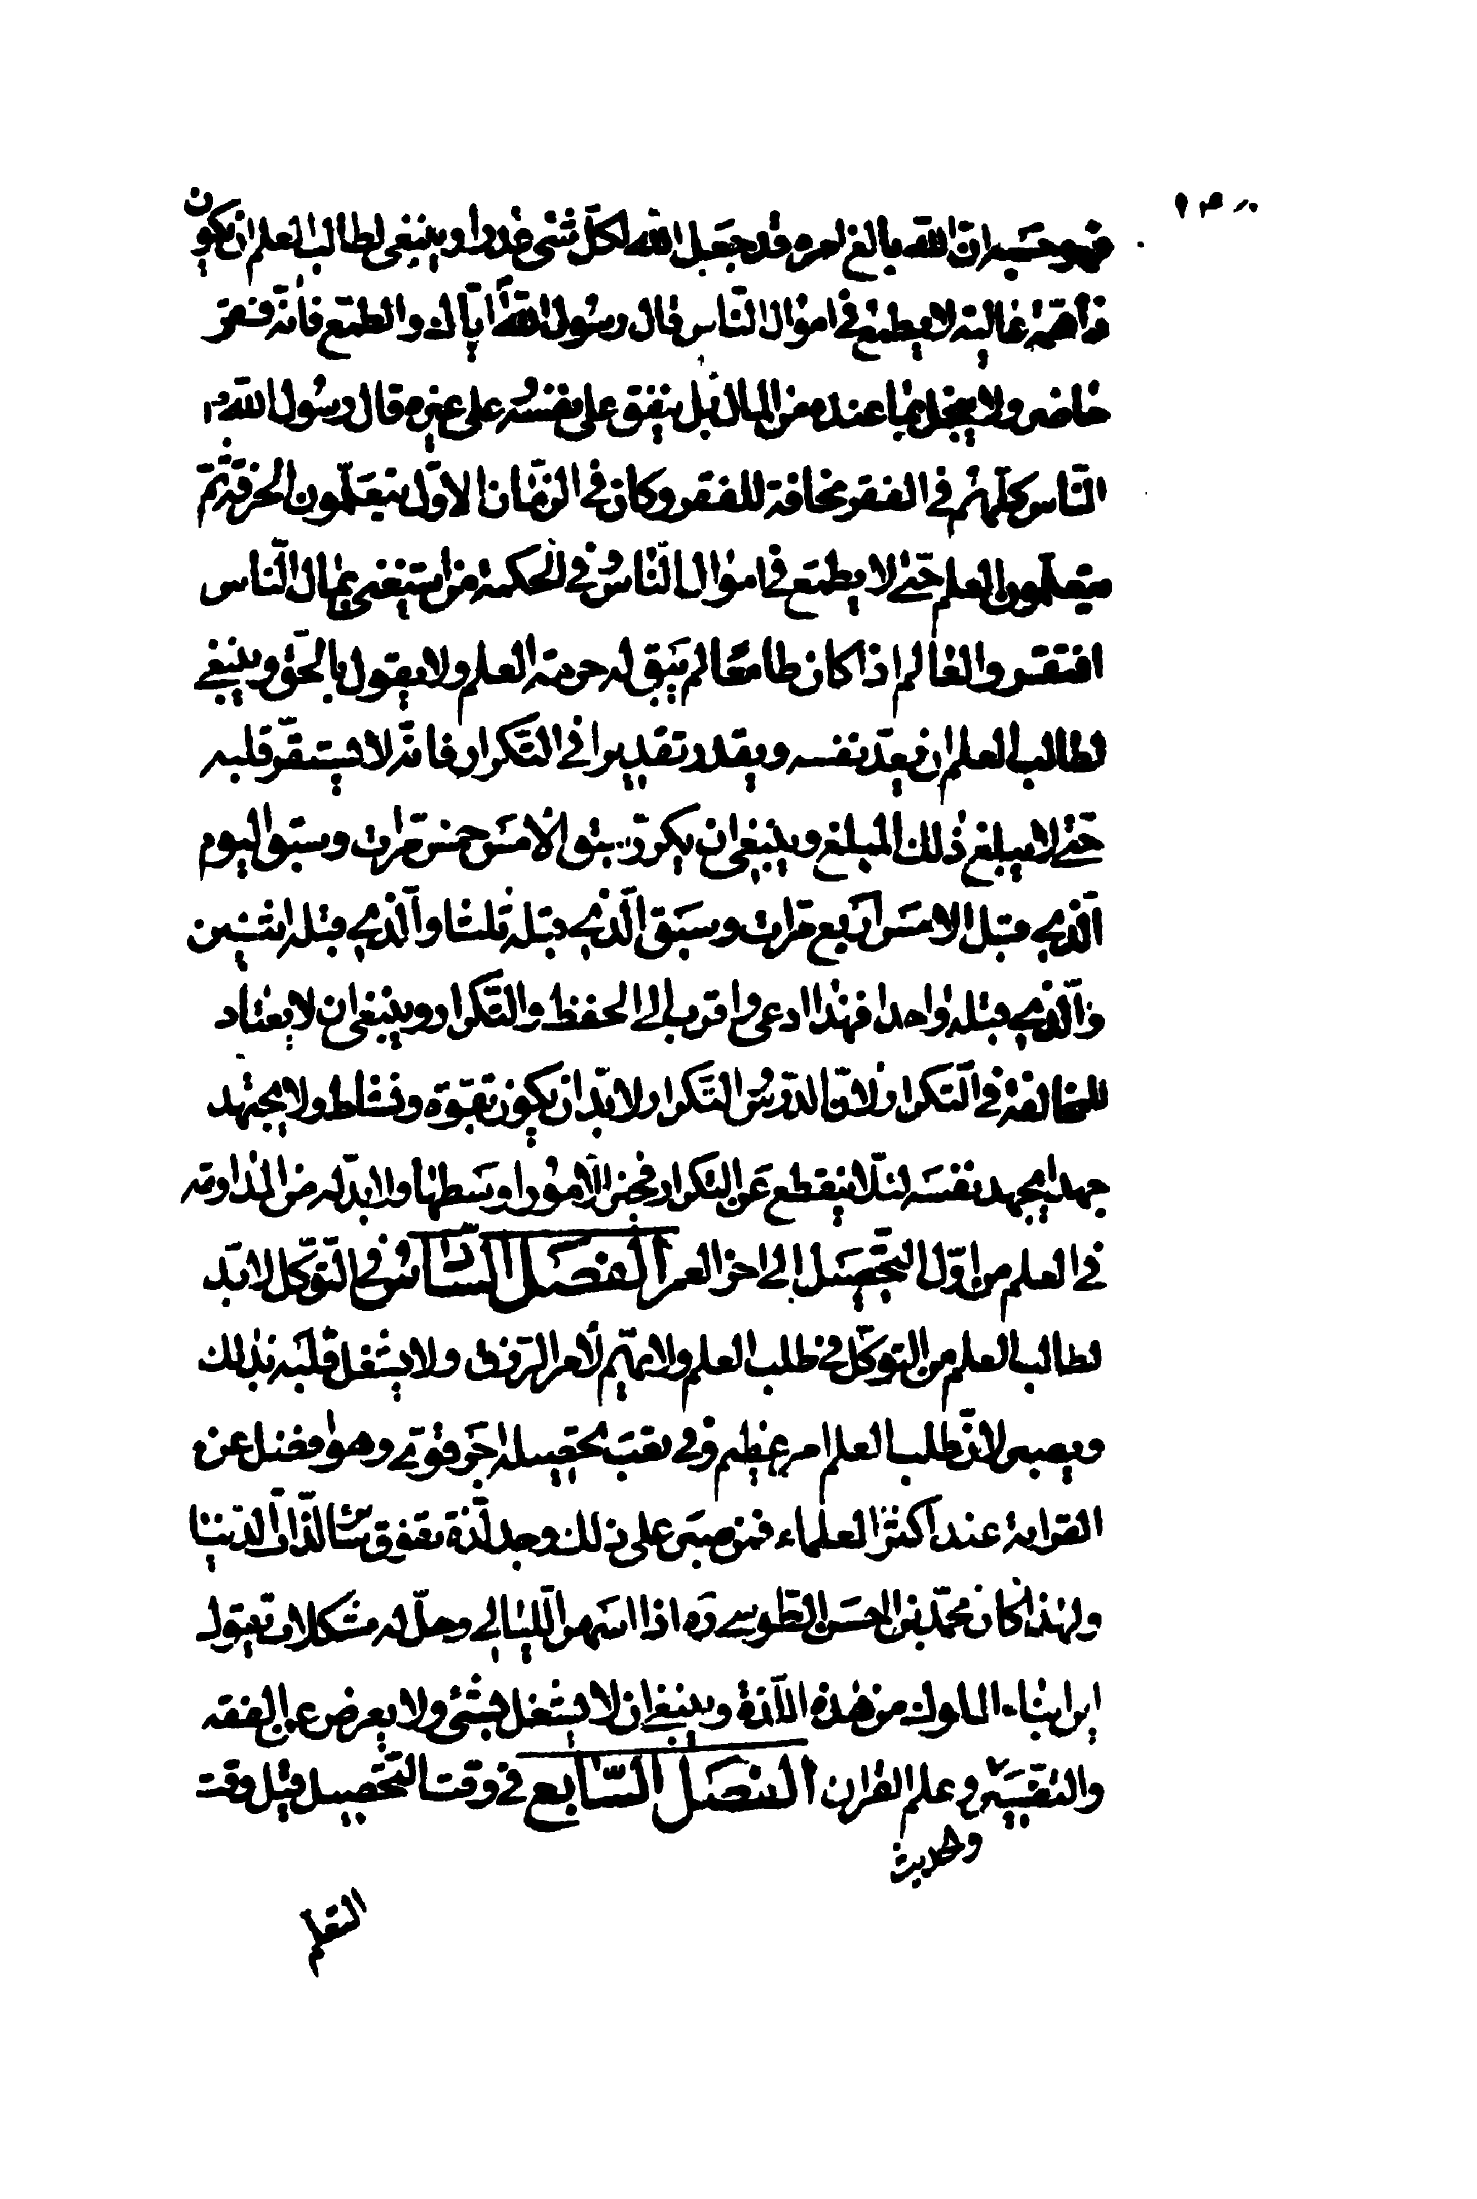 فهو حسبه ان الله بالغ امره قد جعل الله لكل شئ قدرا وينبغى لطالب العلم ان يكون
ذا همة عالية لا يطمع في اموال الناس قال رسول الله اياك والطمع فانه فقر
حاضر ولا يبخل بما عنده من المال بل ينفق على نفسه على غيره قال رسول الله ص
الناس كلهم في الفقر مخافة للفقر وكان في الزمان الاول يتعلمون الحرفة ثم
يتعلمون العلم حتى لا يطمع في اموال الناس في الحكمة من استغنى بمال الناس
افتقر والعالم اذا كان طامعا لم يبق له حرمة العلم ولا يقول بالحق وينبغي
لطالب العلم ان يعد نفسه ويقدر تقديرا في التكرار فانه لا يستقر قلبه
حتى لا يبلغ ذلك المبلغ وينبغى ان يكرر سبق الامس خمس مرات وسبق اليوم
الذي قبل الامس اربع مرات وسبق الذي قبله ثلثا والذي قبله اثنين
والذي قبله واحدا فهذا ادعى واقرب الى الحفظ والتكرار وينبغى ان لا يعتاد
المخافة في التكرار لان الدرس التكرار لا بد ان يكون بقوة ونشاط ولا يجتهد
جهدا يجهد نفسه لئلا ينقطع عن التكرار فخير الامور اوسطها ولا بد له من المداومة
في العلم من اول التحصيل الى اخر العمر الفصل السادس في التوكل لا بد
لطالب العلم من التوكل في طلب العلم ولا يهتم لامر الرزق ولا يشغل قلبه بذلك
ويصبر لان طلب العلم امر عظيم وفي تعب تحصيله اجر قوي وهو افضل من
القراءة عند اكثر العلماء فمن صبر على ذلك وجد لذة تفوق سائر لذات الدنيا
ولهذا كان محمد بن الحسن الطوسي ره اذا اسهر الليالي وحل له مشكلات يقول
اين ابناء الملوك من هذه اللذة وينبغي ان لا يشتغل بشئ ولا يعرض عن الفقه
والتفسير وعلم القران الفصل السابع في وقت التحصيل قيل وقت
والحديث
التعلم